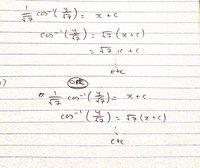 1/√7 cos⁻¹ (y/√7) = x + c
cos⁻¹ (y/√7) = √7 (x + c)
= √7 x + c
⋮
etc
OR
1/√7 cos⁻¹ (y/√7) = x + c
cos⁻¹ (y/√7) = √7 (x + c)
⋮
etc